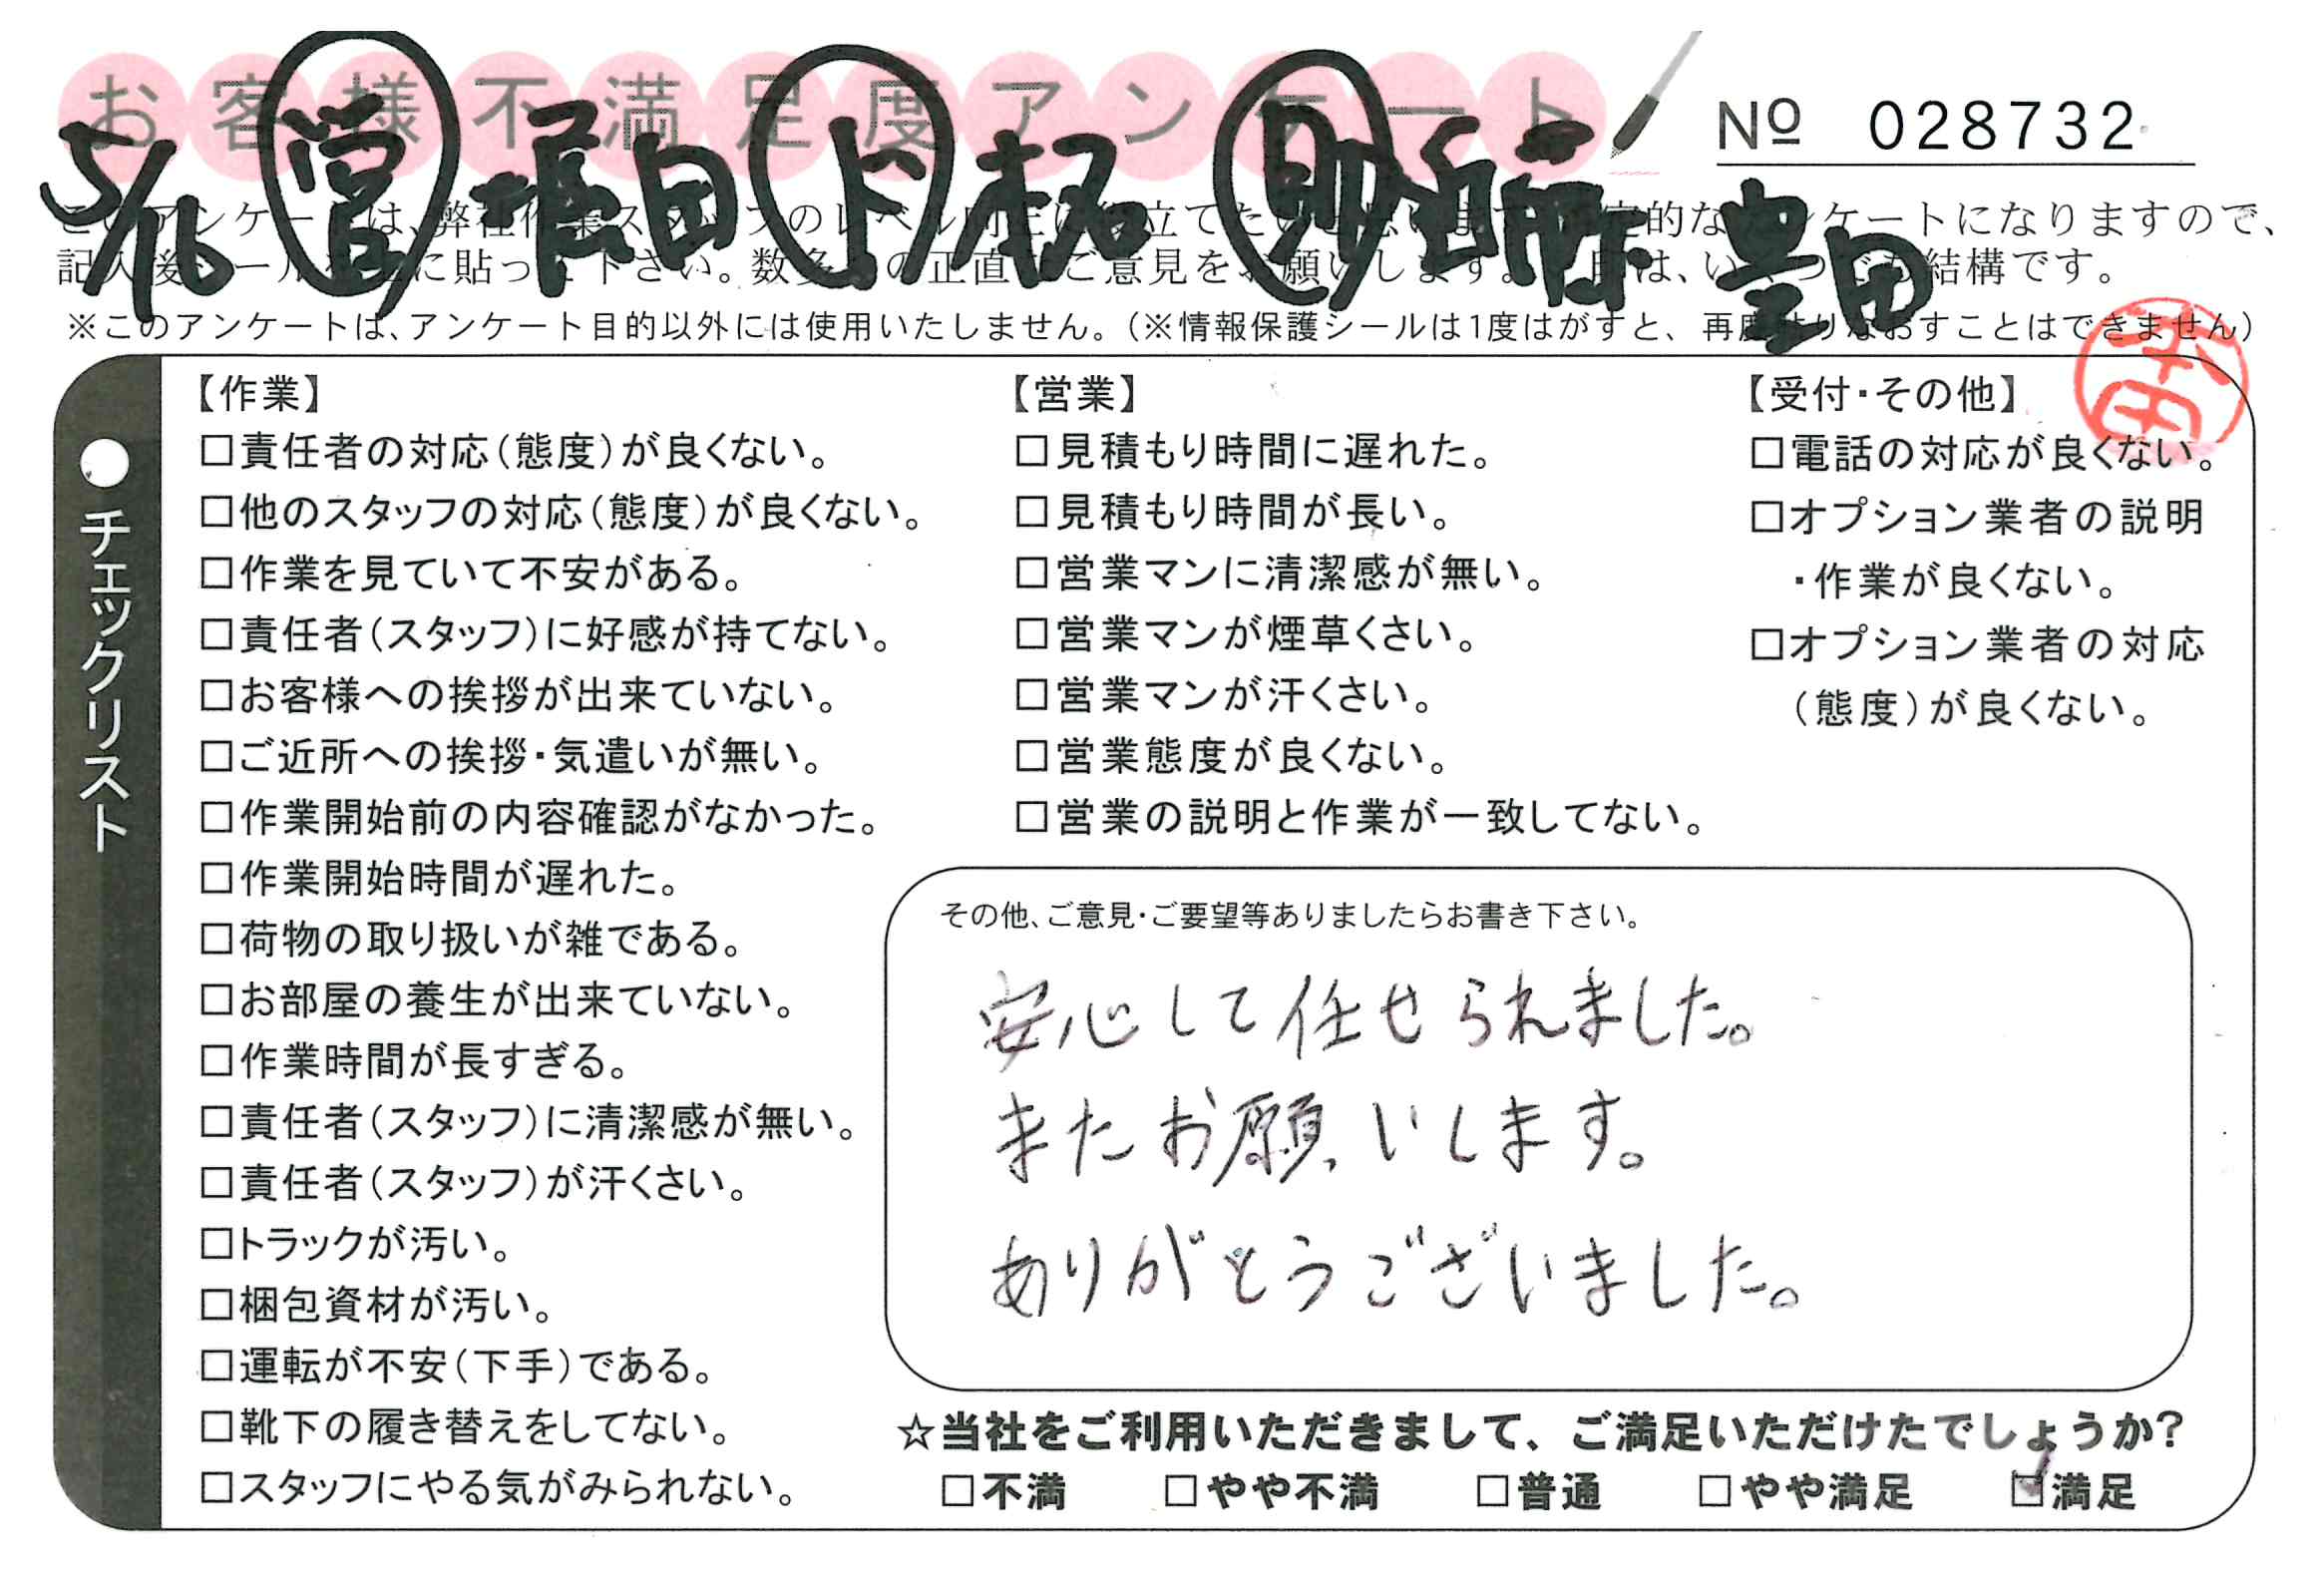 お客様不満足度アンケート
№ 028732
5/16 営 堀田 ド 柘 助 豊田
※このアンケートは、アンケート目的以外には使用いたしません。（※情報保護シールは1度はがすと、再度はりなおすことはできません）
本田
●チェックリスト
【作業】
□責任者の対応（態度）が良くない。
□他のスタッフの対応（態度）が良くない。
□作業を見ていて不安がある。
□責任者（スタッフ）に好感が持てない。
□お客様への挨拶が出来ていない。
□ご近所への挨拶・気遣いが無い。
□作業開始前の内容確認がなかった。
□作業開始時間が遅れた。
□荷物の取り扱いが雑である。
□お部屋の養生が出来ていない。
□作業時間が長すぎる。
□責任者（スタッフ）に清潔感が無い。
□責任者（スタッフ）が汗くさい。
□トラックが汚い。
□梱包資材が汚い。
□運転が不安（下手）である。
□靴下の履き替えをしてない。
□スタッフにやる気がみられない。
【営業】
□見積もり時間に遅れた。
□見積もり時間が長い。
□営業マンに清潔感が無い。
□営業マンが煙草くさい。
□営業マンが汗くさい。
□営業態度が良くない。
□営業の説明と作業が一致してない。
【受付・その他】
□電話の対応が良くない。
□オプション業者の説明
・作業が良くない。
□オプション業者の対応
（態度）が良くない。
その他、ご意見・ご要望等ありましたらお書き下さい。
安心して任せられました。
またお願いします。
ありがとうございました。
☆当社をご利用いただきまして、ご満足いただけたでしょうか？
□不満 □やや不満 □普通 □やや満足 ☑満足